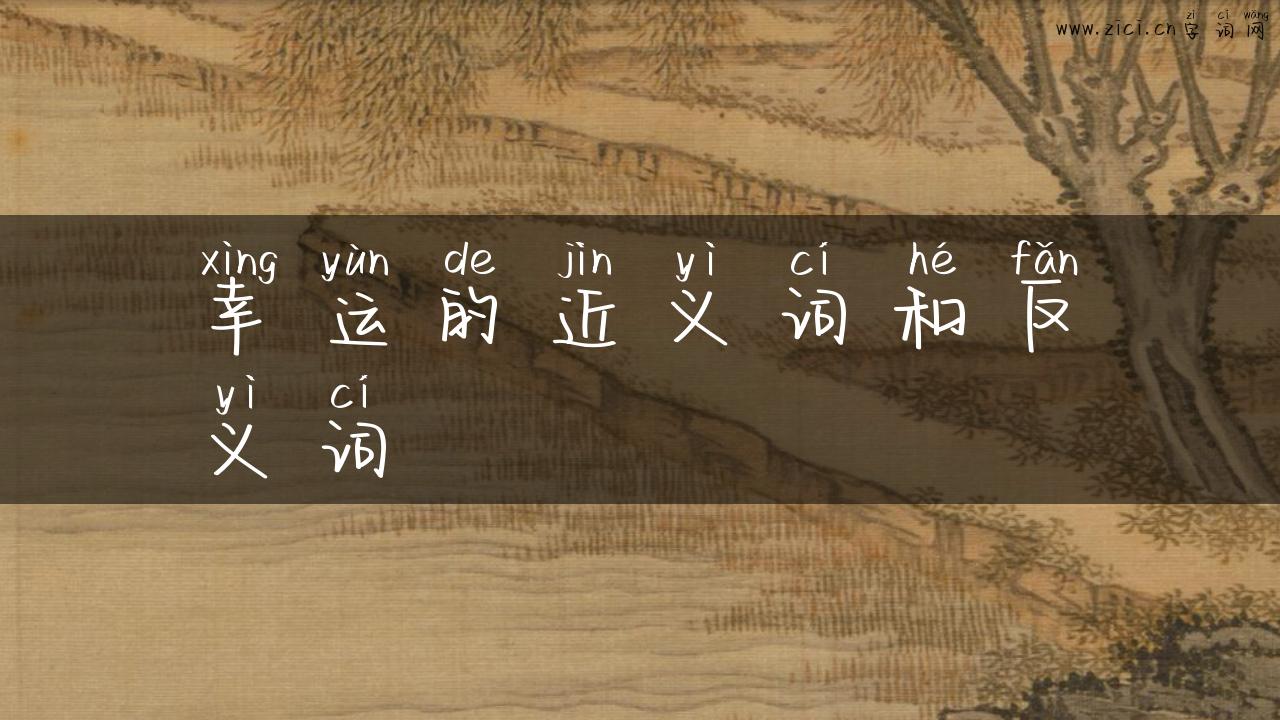 zì cí wǎng
www.zici.cn字词网
xìng yùn de jìn yì cí hé fǎn
幸运的近义词和反
yì cí
义词